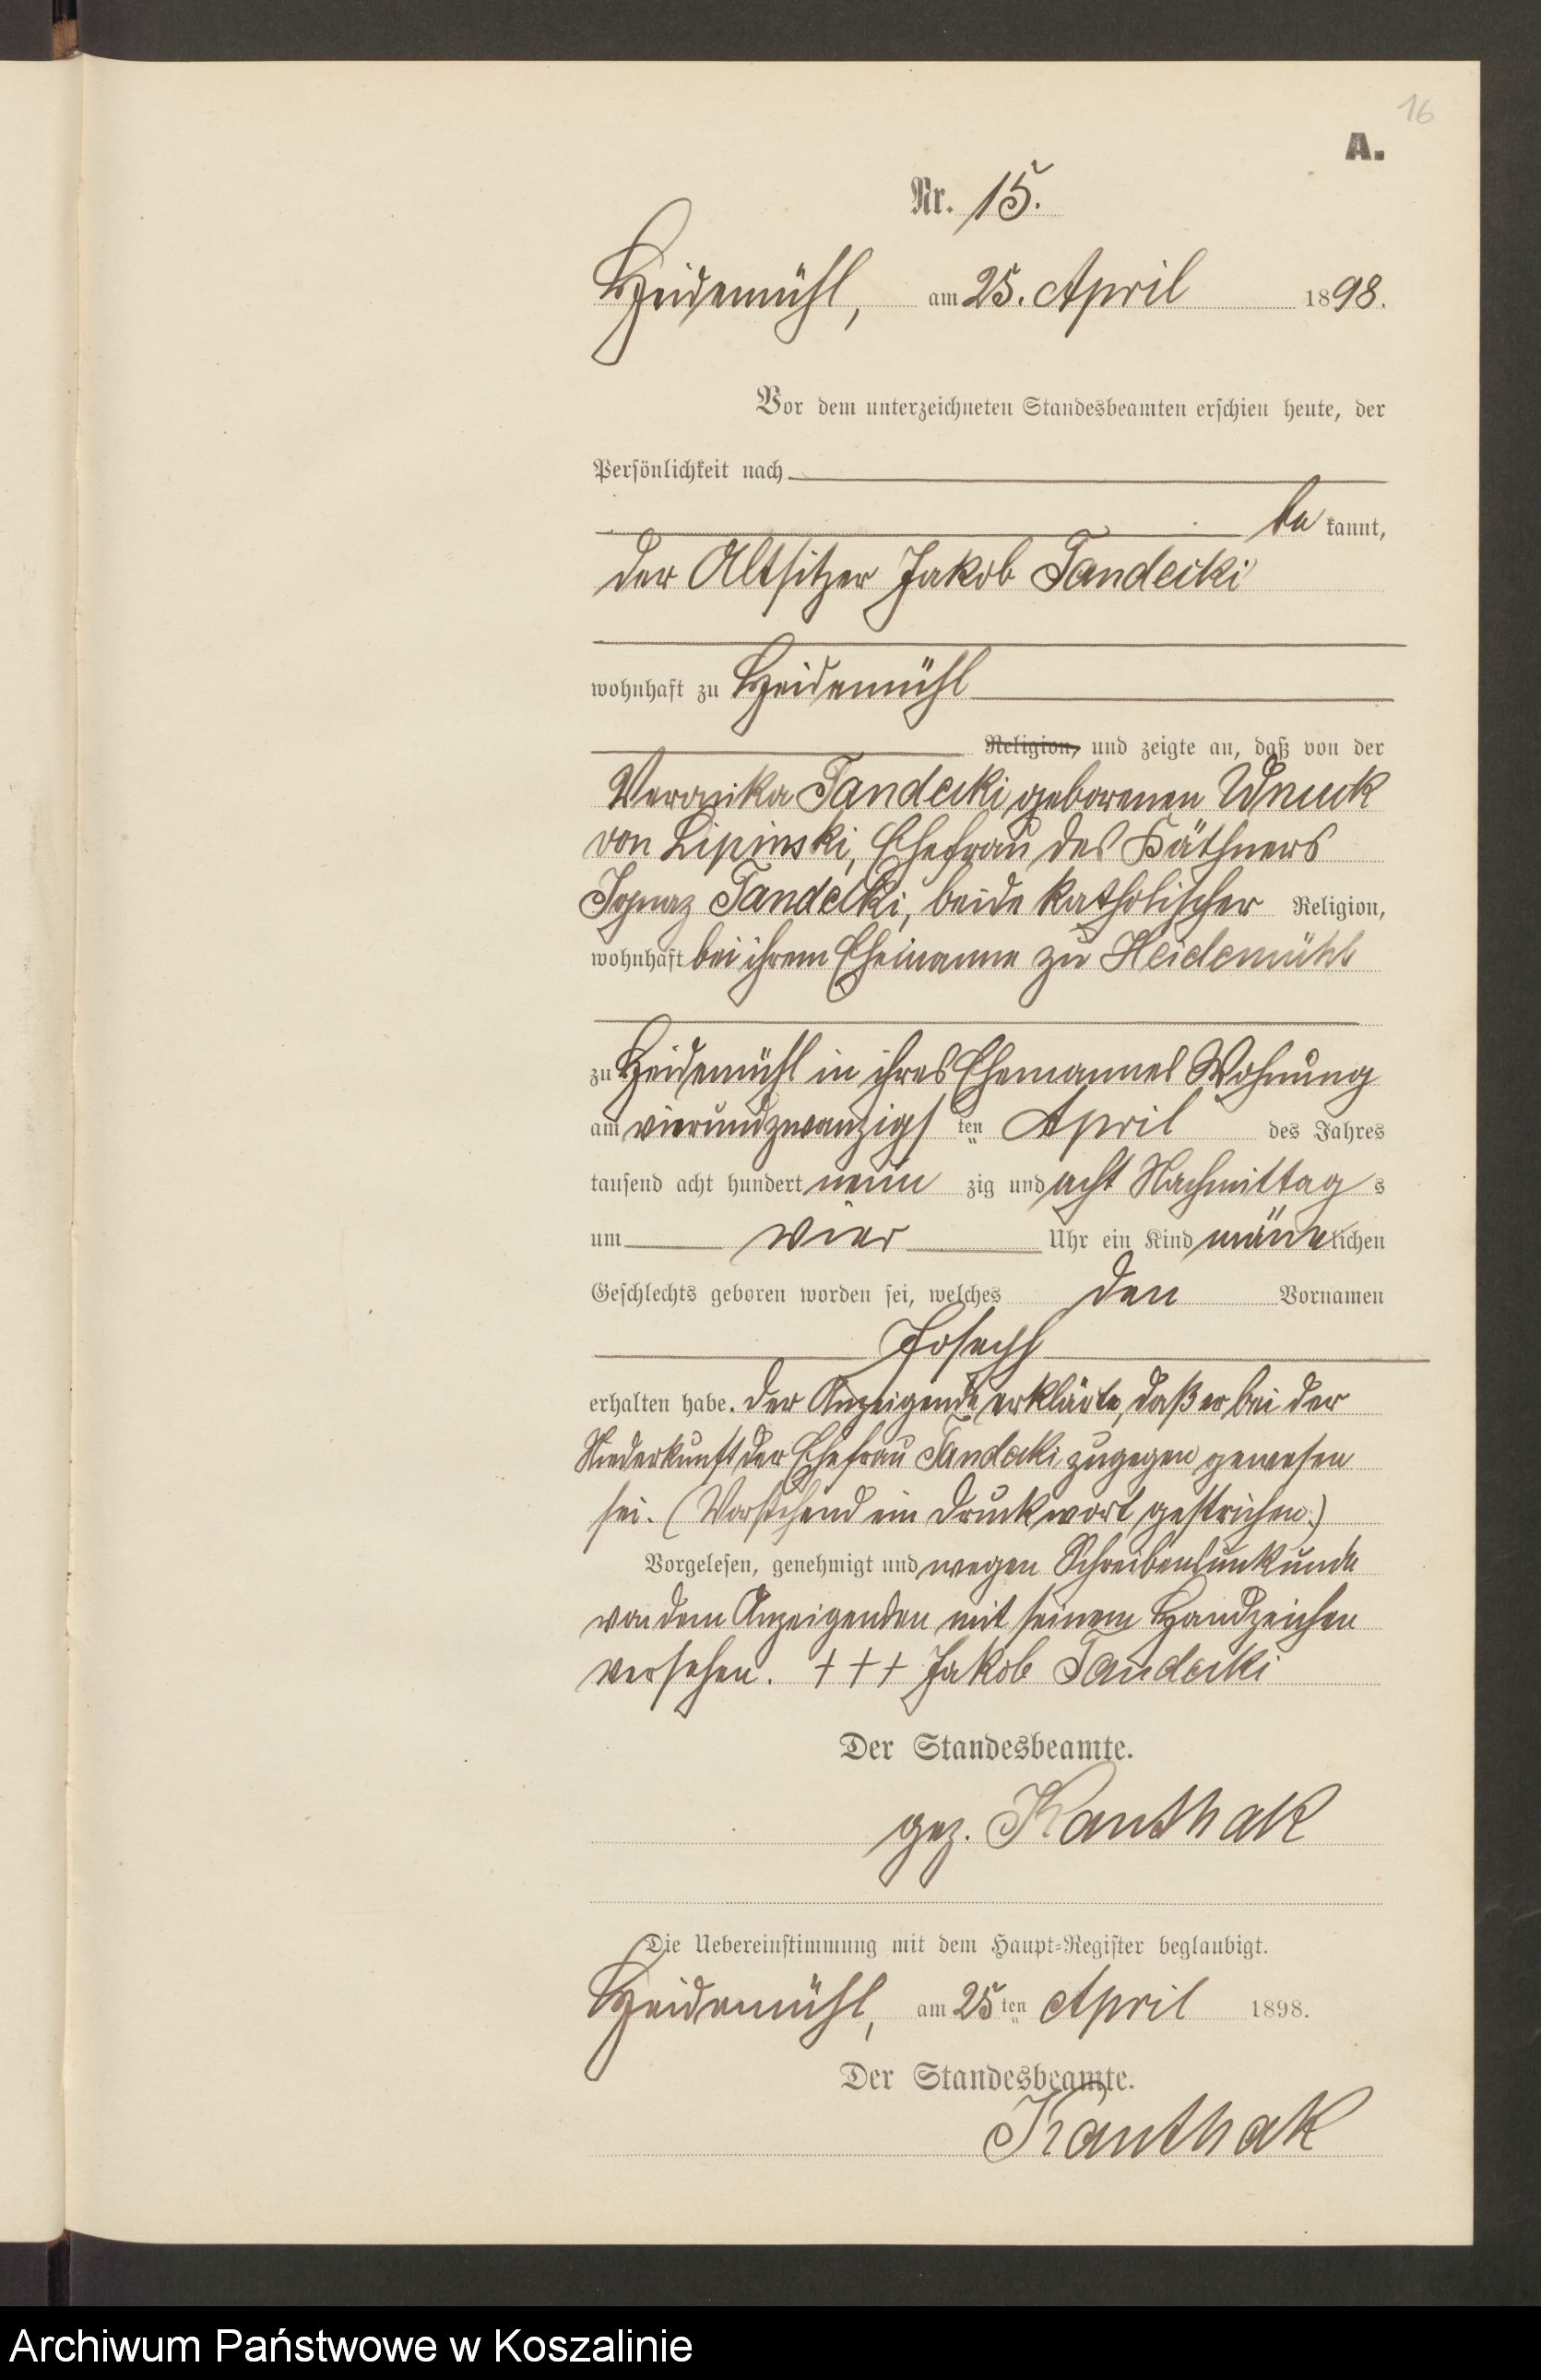 16
A.
Nr. 15.
Heidemühl, am 25. April 1898.
Vor dem unterzeichneten Standesbeamten erschien heute, der
Persönlichkeit nach
be kannt,
der Altsitzer Jakob Tandecki
wohnhaft zu Heidemühl
Religion, und zeigte an, daß von der
Veronika Tandecki geborenen Wnuck
von Lipinski, Ehefrau des Käthners
Ignaz Tandecki, beide katholischer Religion,
wohnhaft bei ihrem Ehemanne zu Heidemühl
zu Heidemühl in ihres Ehemannes Wohnung
am vierundzwanzigsten April des Jahres
tausend acht hundert neun zig und acht Nachmittag s
um vier Uhr ein Kind männlichen
Geschlechts geboren worden sei, welches den Vornamen
Joseph
erhalten habe. Der Anzeigende erklärte, daß er bei der
Niederkunft der Ehefrau Tandecki zugegen gewesen
sei. (Vorstehend ein Druckwort gestrichen.)
Vorgelesen, genehmigt und wegen Schreibensunkunde
von dem Anzeigenden mit seinem Handzeichen
versehen. +++ Jakob Tandecki
Der Standesbeamte.
gez. Kanthak
Die Uebereinstimmung mit dem Haupt-Register beglaubigt.
Heidemühl, am 25ten April 1898.
Der Standesbeamte.
Kanthak
Archiwum Państwowe w Koszalinie